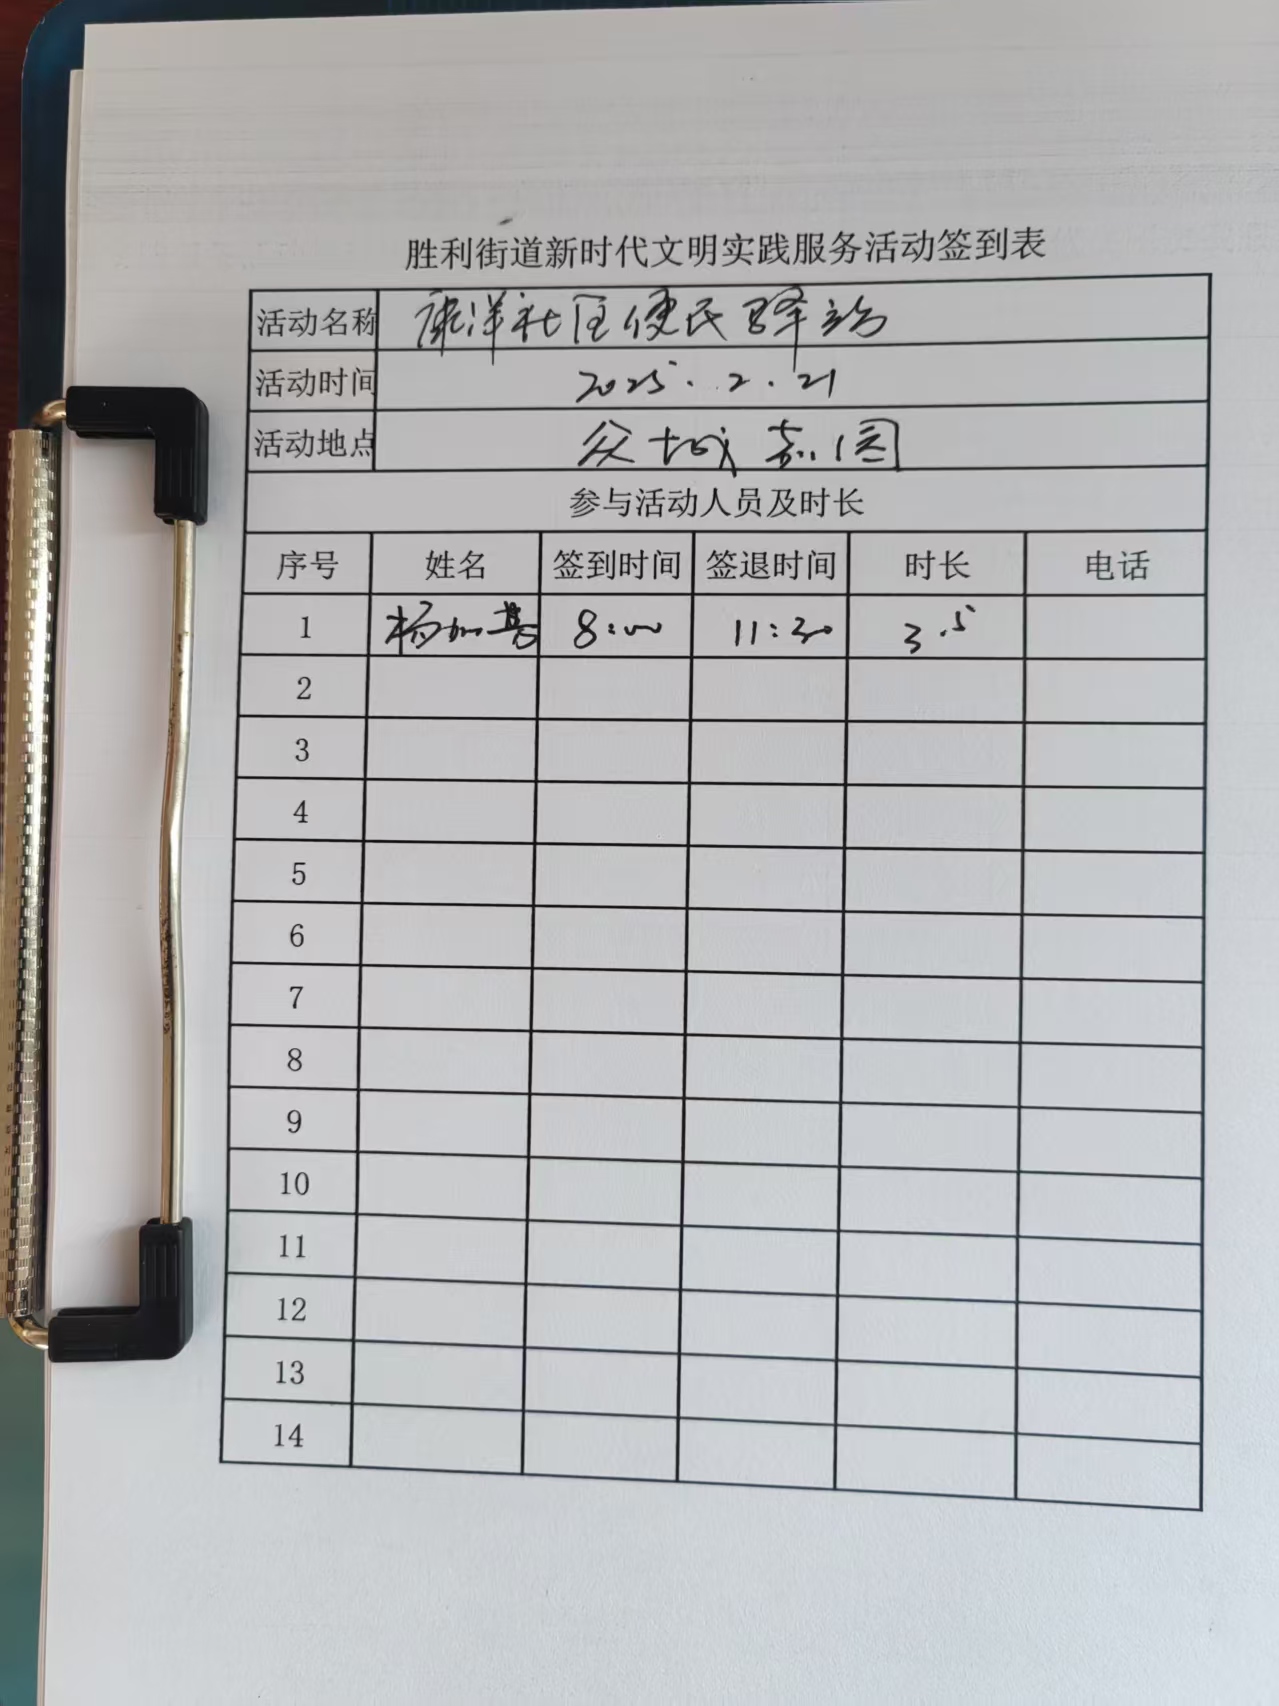 胜利街道新时代文明实践服务活动签到表
活动名称 康洋社区便民驿站
活动时间 2025.2.21
活动地点 众城嘉园
参与活动人员及时长
序号 姓名 签到时间 签退时间 时长 电话
1 杨加 8:00 11:30 3.5
2
3
4
5
6
7
8
9
10
11
12
13
14